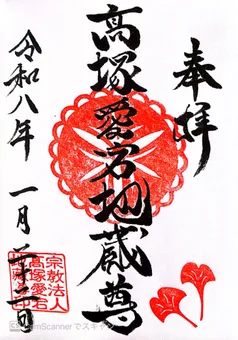 奉拝
高塚愛宕地蔵尊
令和八年 一月二十三日
宗教法人
高塚愛宕
CamScannerでスキャン